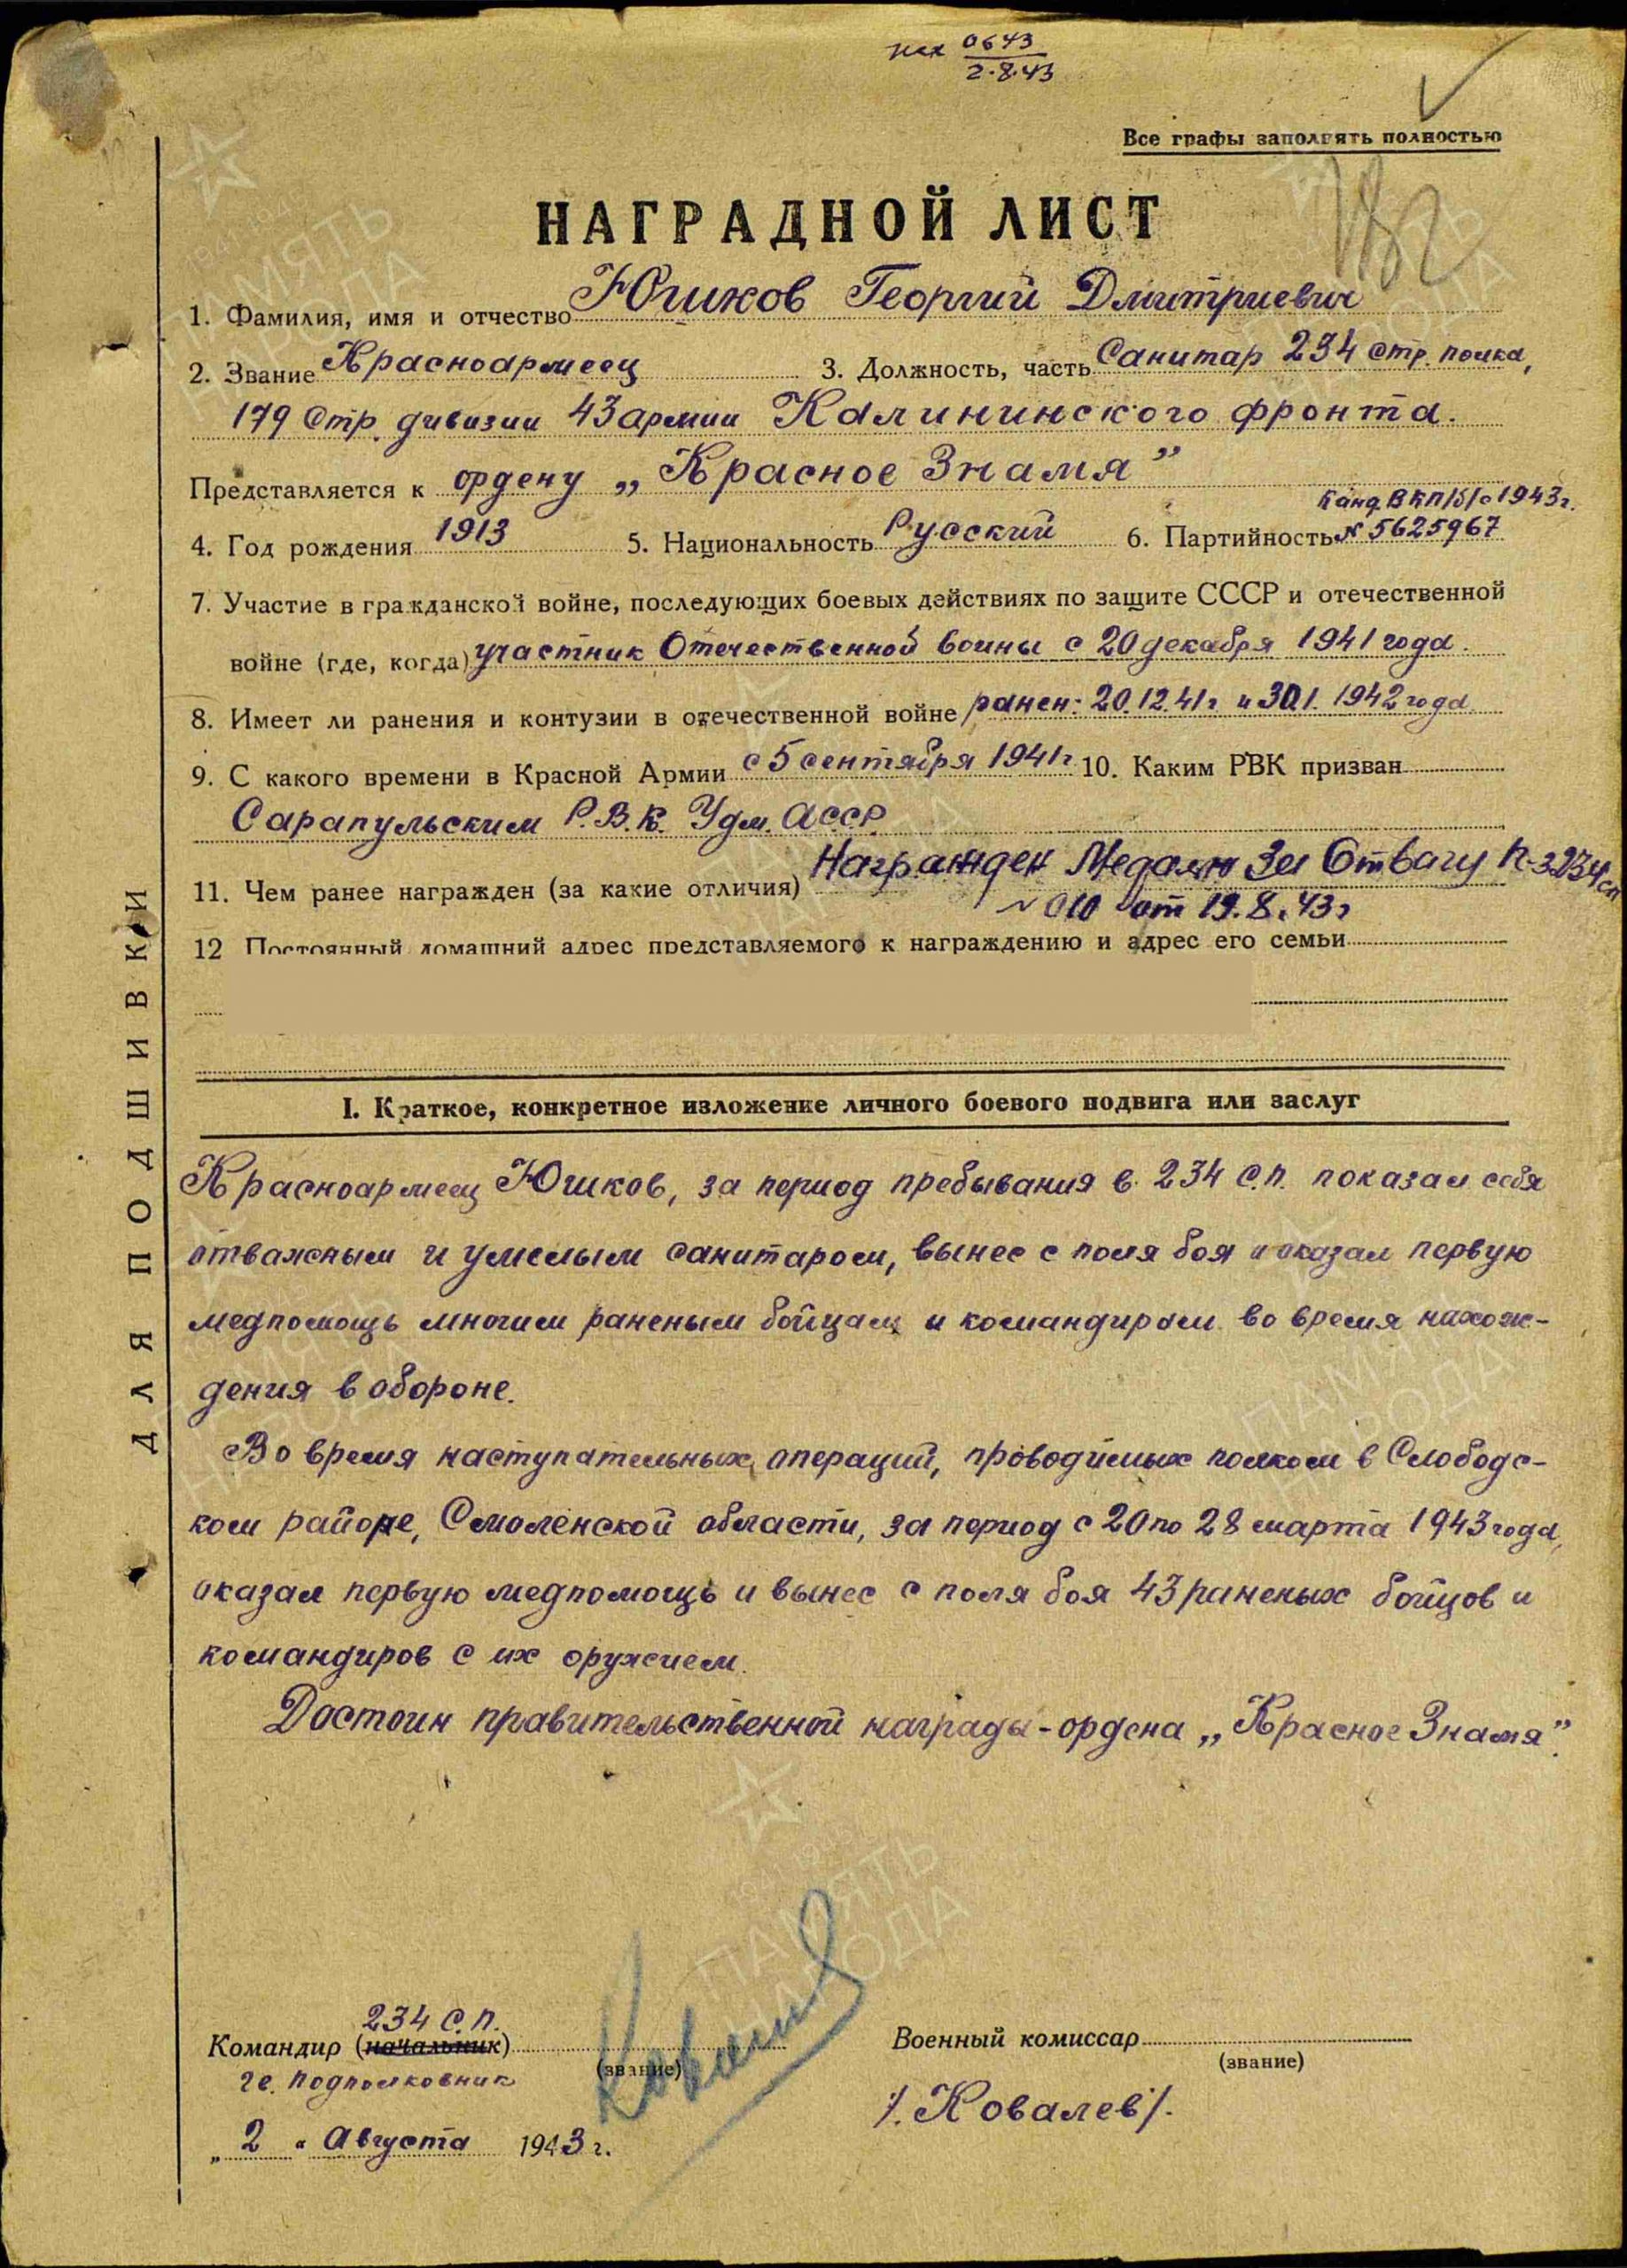 исх 0643
2.8.43
Все графы заполнять полностью
НАГРАДНОЙ ЛИСТ
1. Фамилия, имя и отчество Юшков Георгий Дмитриевич
2. Звание Красноармеец 3. Должность, часть Санитар 234 стр. полка,
179 Стр. дивизии 43 армии Калининского фронта.
Представляется к ордену „Красное Знамя"
Канд. ВКП/б/ с 1943 г.
4. Год рождения 1913 5. Национальность Русский 6. Партийность № 5625967
7. Участие в гражданской войне, последующих боевых действиях по защите СССР и отечественной
войне (где, когда) участник Отечественной воины с 20 декабря 1941 года.
8. Имеет ли ранения и контузии в отечественной войне ранен: 20.12.41г и 30.1.1942 года.
9. С какого времени в Красной Армии с 5 сентября 1941г 10. Каким РВК призван
Сарапульским Р.В.К. Удм. АССР
11. Чем ранее награжден (за какие отличия) Награжден Медалю За Отвагу 234 сп
№ 010 от 19.8.43г
12 Постоянный домашний адрес представляемого к награждению и адрес его семьи
I. Краткое, конкретное изложение личного боевого подвига или заслуг
Красноармеец Юшков, за период пребывания в 234 с.п. показал себя
отважным и умелым санитаром, вынес с поля боя и оказал первую
медпомощь многим раненым бойцам и командирам во время нахож-
дения в обороне.
Во время наступательных операций, проводимых полком в Слободс-
ком районе, Смоленской области, за период с 20 по 28 марта 1943 года,
оказал первую медпомощь и вынес с поля боя 43 раненых бойцов и
командиров с их оружием.
Достоин правительственной награды - ордена „Красное Знамя".
234 с.п.
Командир (начальник) (звание) Военный комиссар (звание)
гв. подполковник
/.Ковалев/.
„2" Августа 1943 г.
ДЛЯ ПОДШИВКИ
ПАМЯТЬ НАРОДА